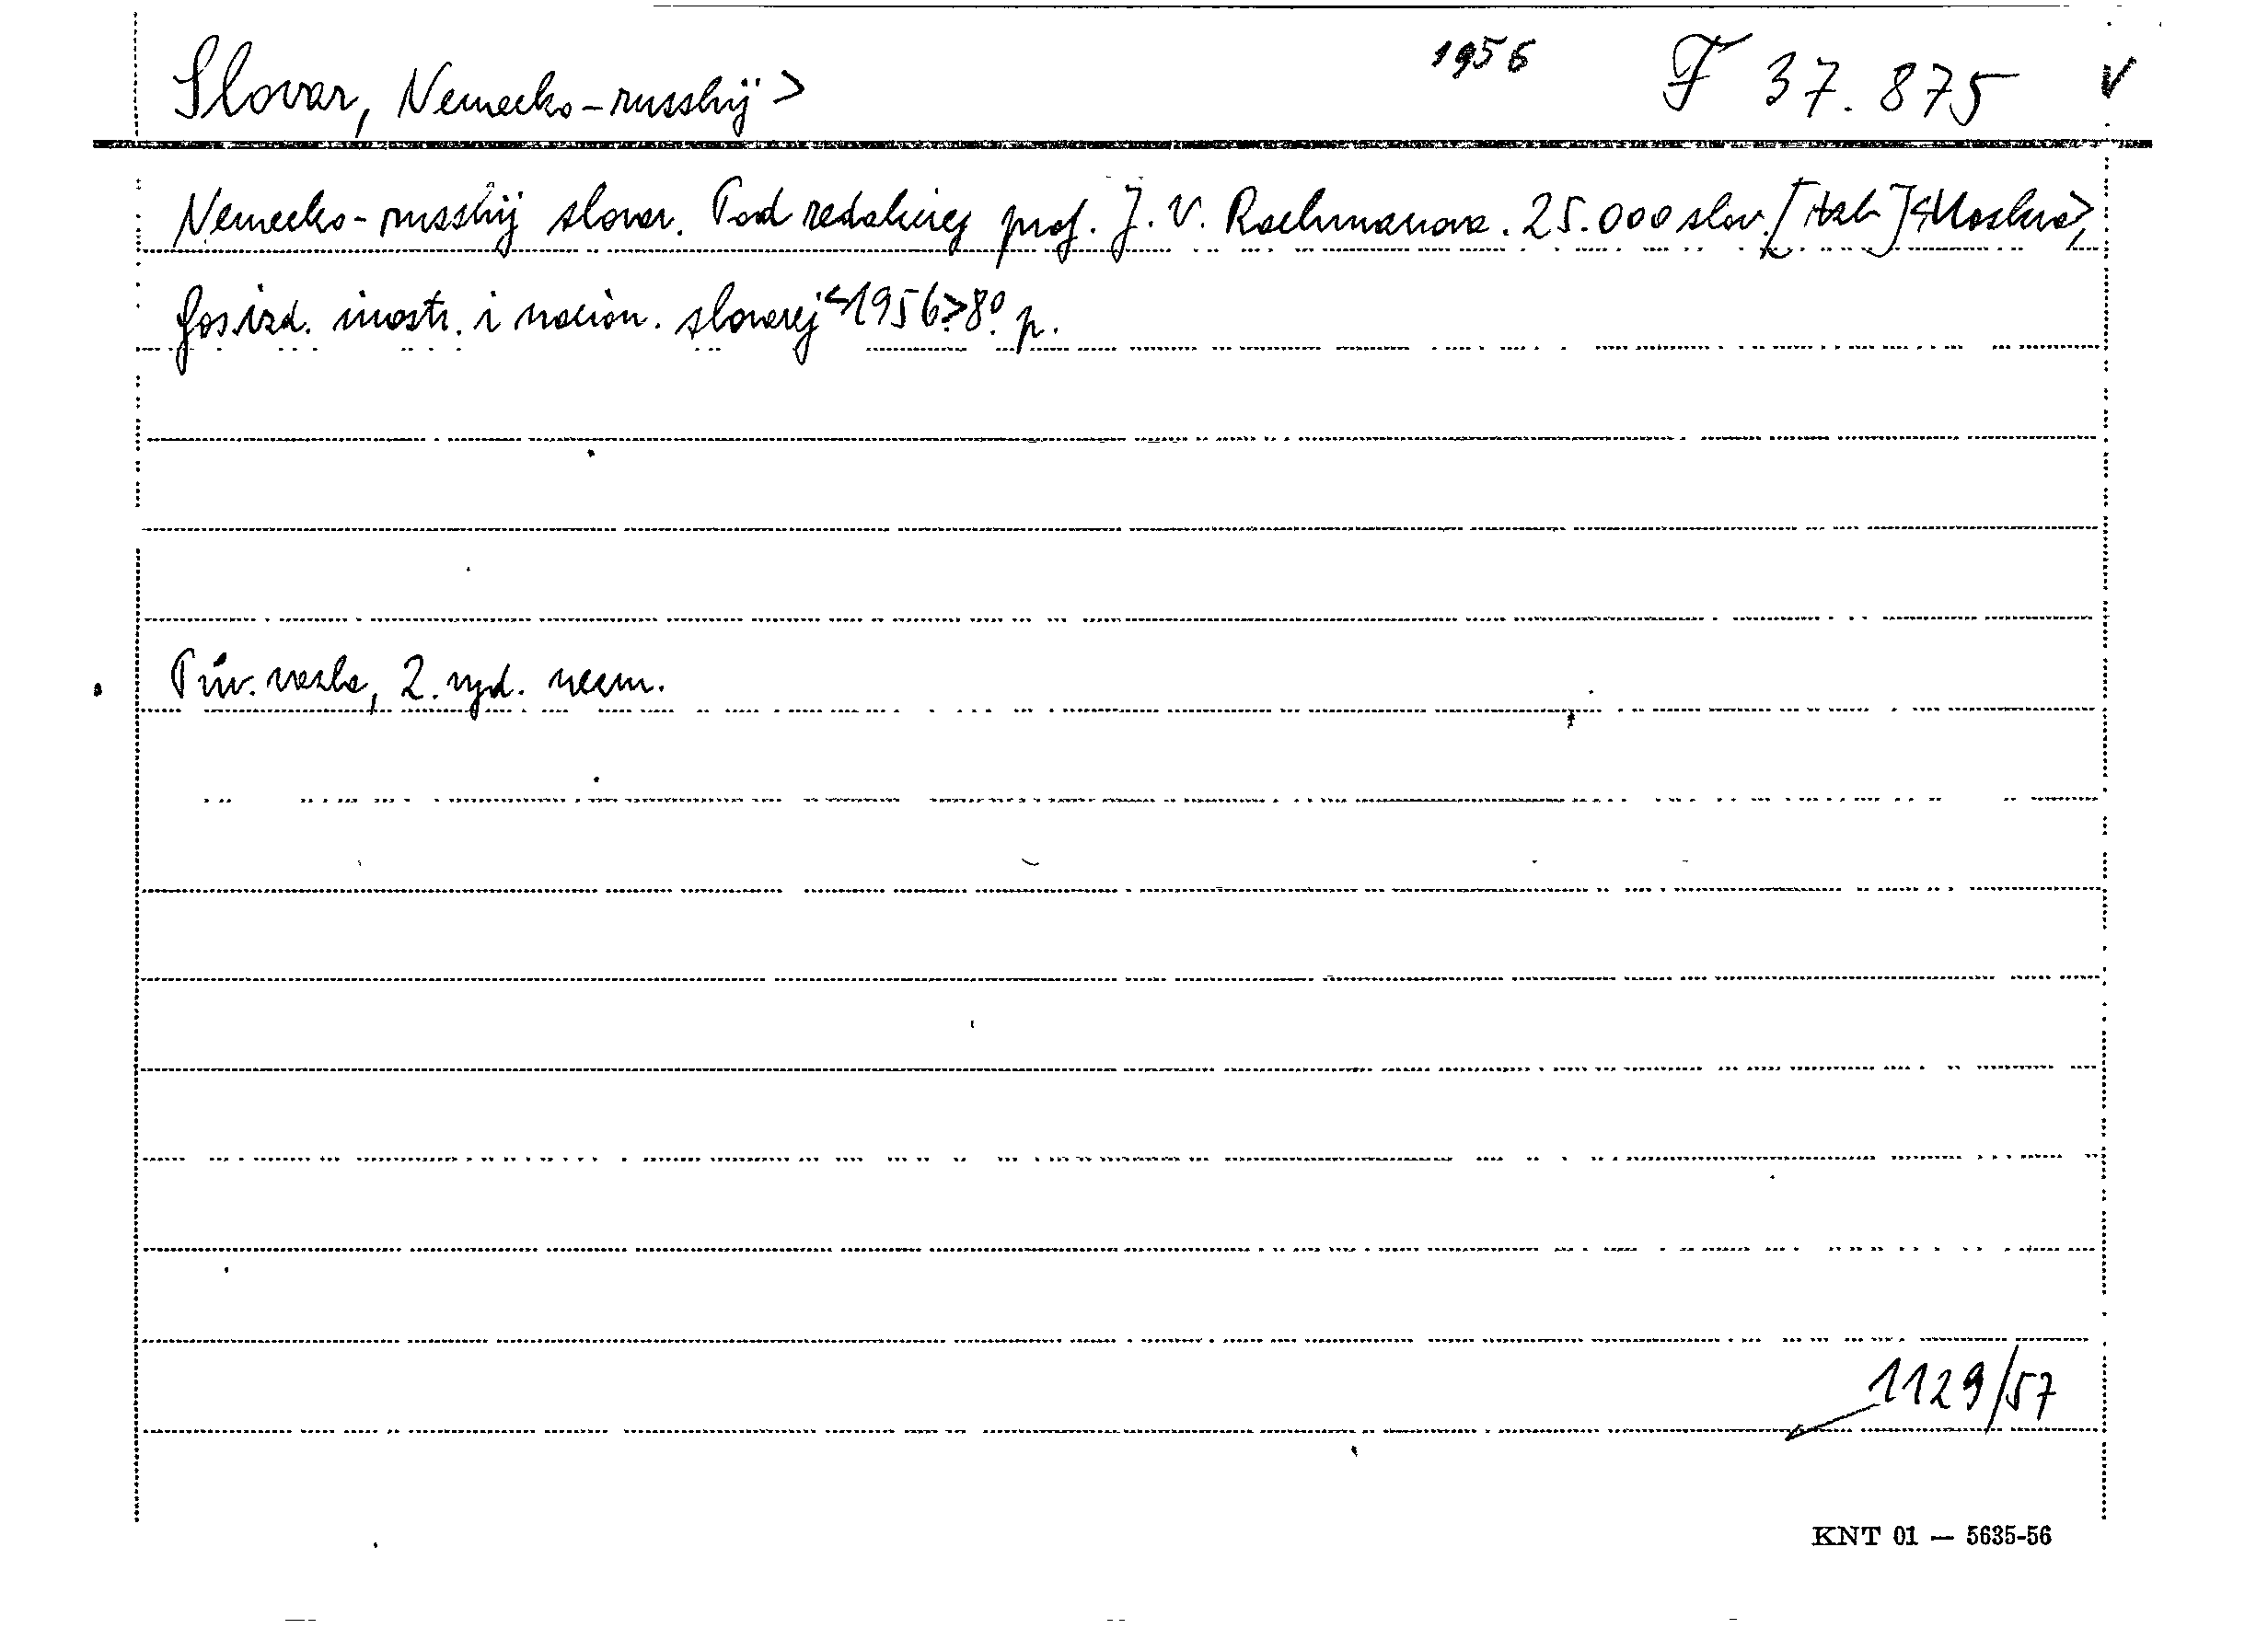 Slovar, Nemecko-russkij > 1956 F 37.875 V
Nemecko-russkij slovar. Pod redakciej prof. J. V. Rachmanova. 25.000 slov. [] <Moskva>,
Gosizd. inostr. i nacion. slovarej <1956.> 8°. p.
Pův. vazba, 2. vyd. neozn.
1129/57
KNT 01 — 5635-56